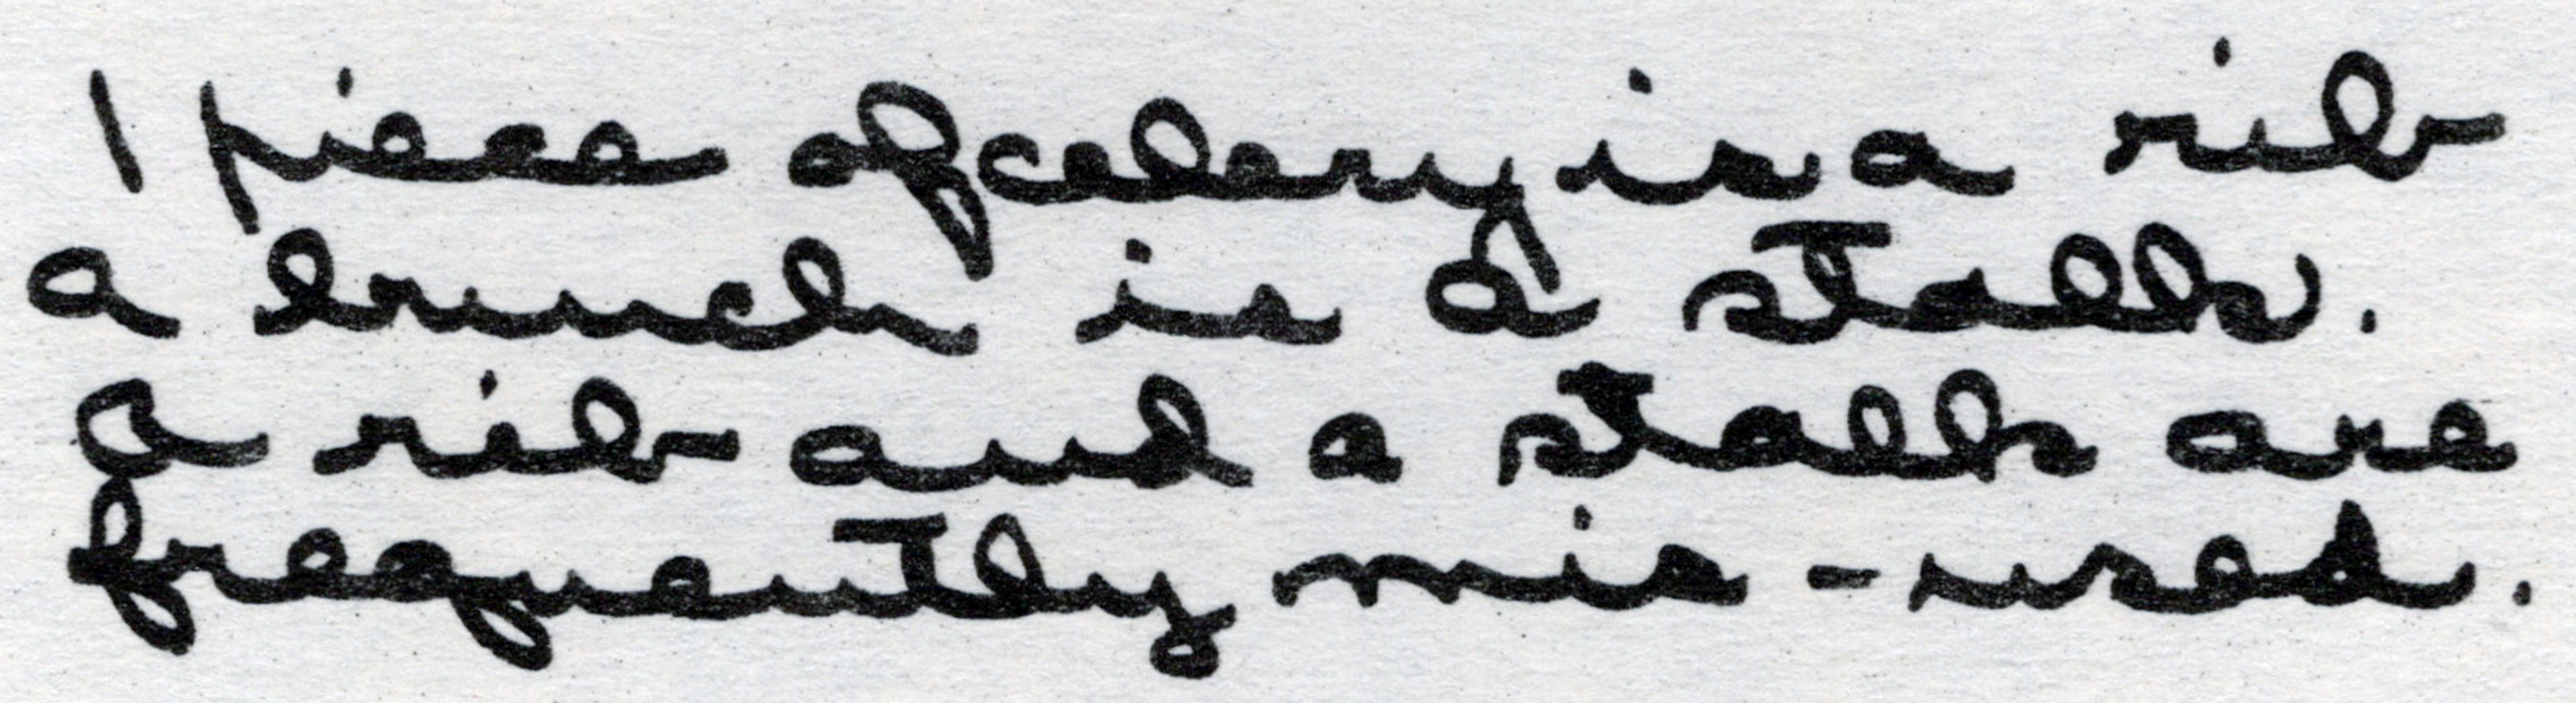 1 piece of celery is a rib
a bunch is a stalk.
a rib and a stalk are
frequently mis-used.